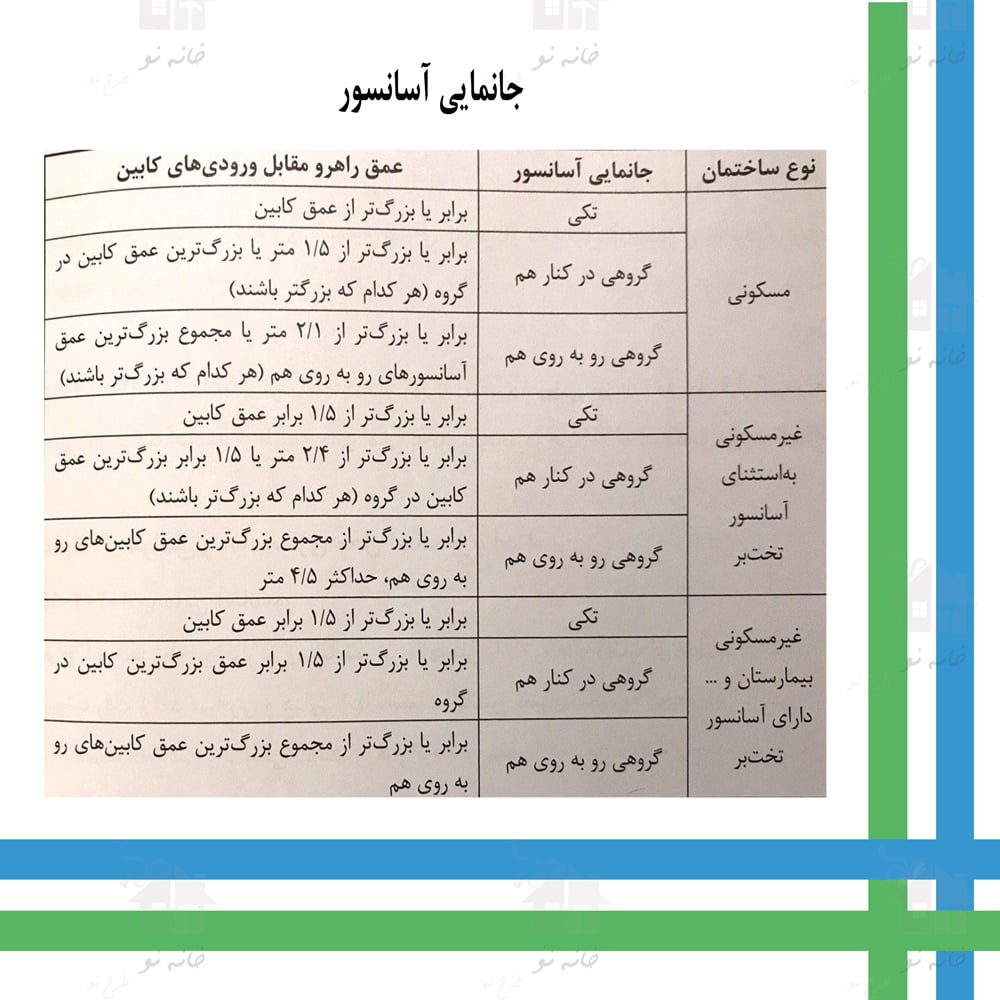 جانمایی آسانسور
نوع ساختمان
جانمایی آسانسور
عمق راهرو مقابل ورودی‌های کابین
مسکونی
تکی
برابر یا بزرگ‌تر از عمق کابین
گروهی در کنار هم
برابر یا بزرگ‌تر از ۱/۵ متر یا بزرگ‌ترین عمق کابین در
گروه (هر کدام که بزرگتر باشند)
گروهی رو به روی هم
برابر یا بزرگ‌تر از ۲/۱ متر یا مجموع بزرگ‌ترین عمق
آسانسورهای رو به روی هم (هر کدام که بزرگ‌تر باشند)
غیرمسکونی
به‌استثنای
آسانسور
تخت‌بر
تکی
برابر یا بزرگ‌تر از ۱/۵ برابر عمق کابین
گروهی در کنار هم
برابر یا بزرگ‌تر از ۲/۴ متر یا ۱/۵ برابر بزرگ‌ترین عمق
کابین در گروه (هر کدام که بزرگ‌تر باشند)
گروهی رو به روی هم
برابر یا بزرگ‌تر از مجموع بزرگ‌ترین عمق کابین‌های رو
به روی هم، حداکثر ۴/۵ متر
غیرمسکونی
بیمارستان و ...
دارای آسانسور
تخت‌بر
تکی
برابر یا بزرگ‌تر از ۱/۵ برابر عمق کابین
گروهی در کنار هم
برابر یا بزرگ‌تر از ۱/۵ برابر عمق بزرگ‌ترین کابین در
گروه
گروهی رو به روی هم
برابر یا بزرگ‌تر از مجموع بزرگ‌ترین عمق کابین‌های رو
به روی هم
خانه نو
طرح نو